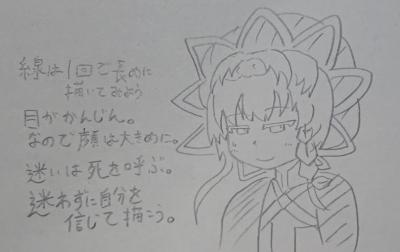 線は1回で長めに
描いてみよう
目がかんじん。
なので顔は大きめに。
迷いは死を呼ぶ。
迷わずに自分を
信じて描こう。